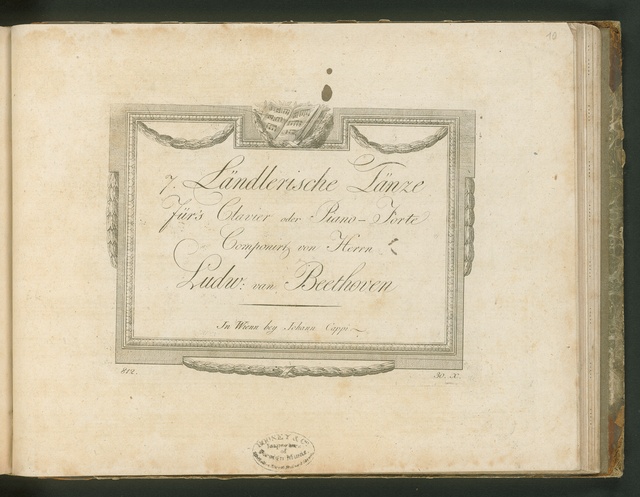 10
7. Ländlerische Tänze
Für's Clavier oder Piano-Forte
Componirt von Herrn
Ludw: van Beethoven
In Wienn bey Johann Cappi
812.
30. X.
& Co.
of
Foreign Music